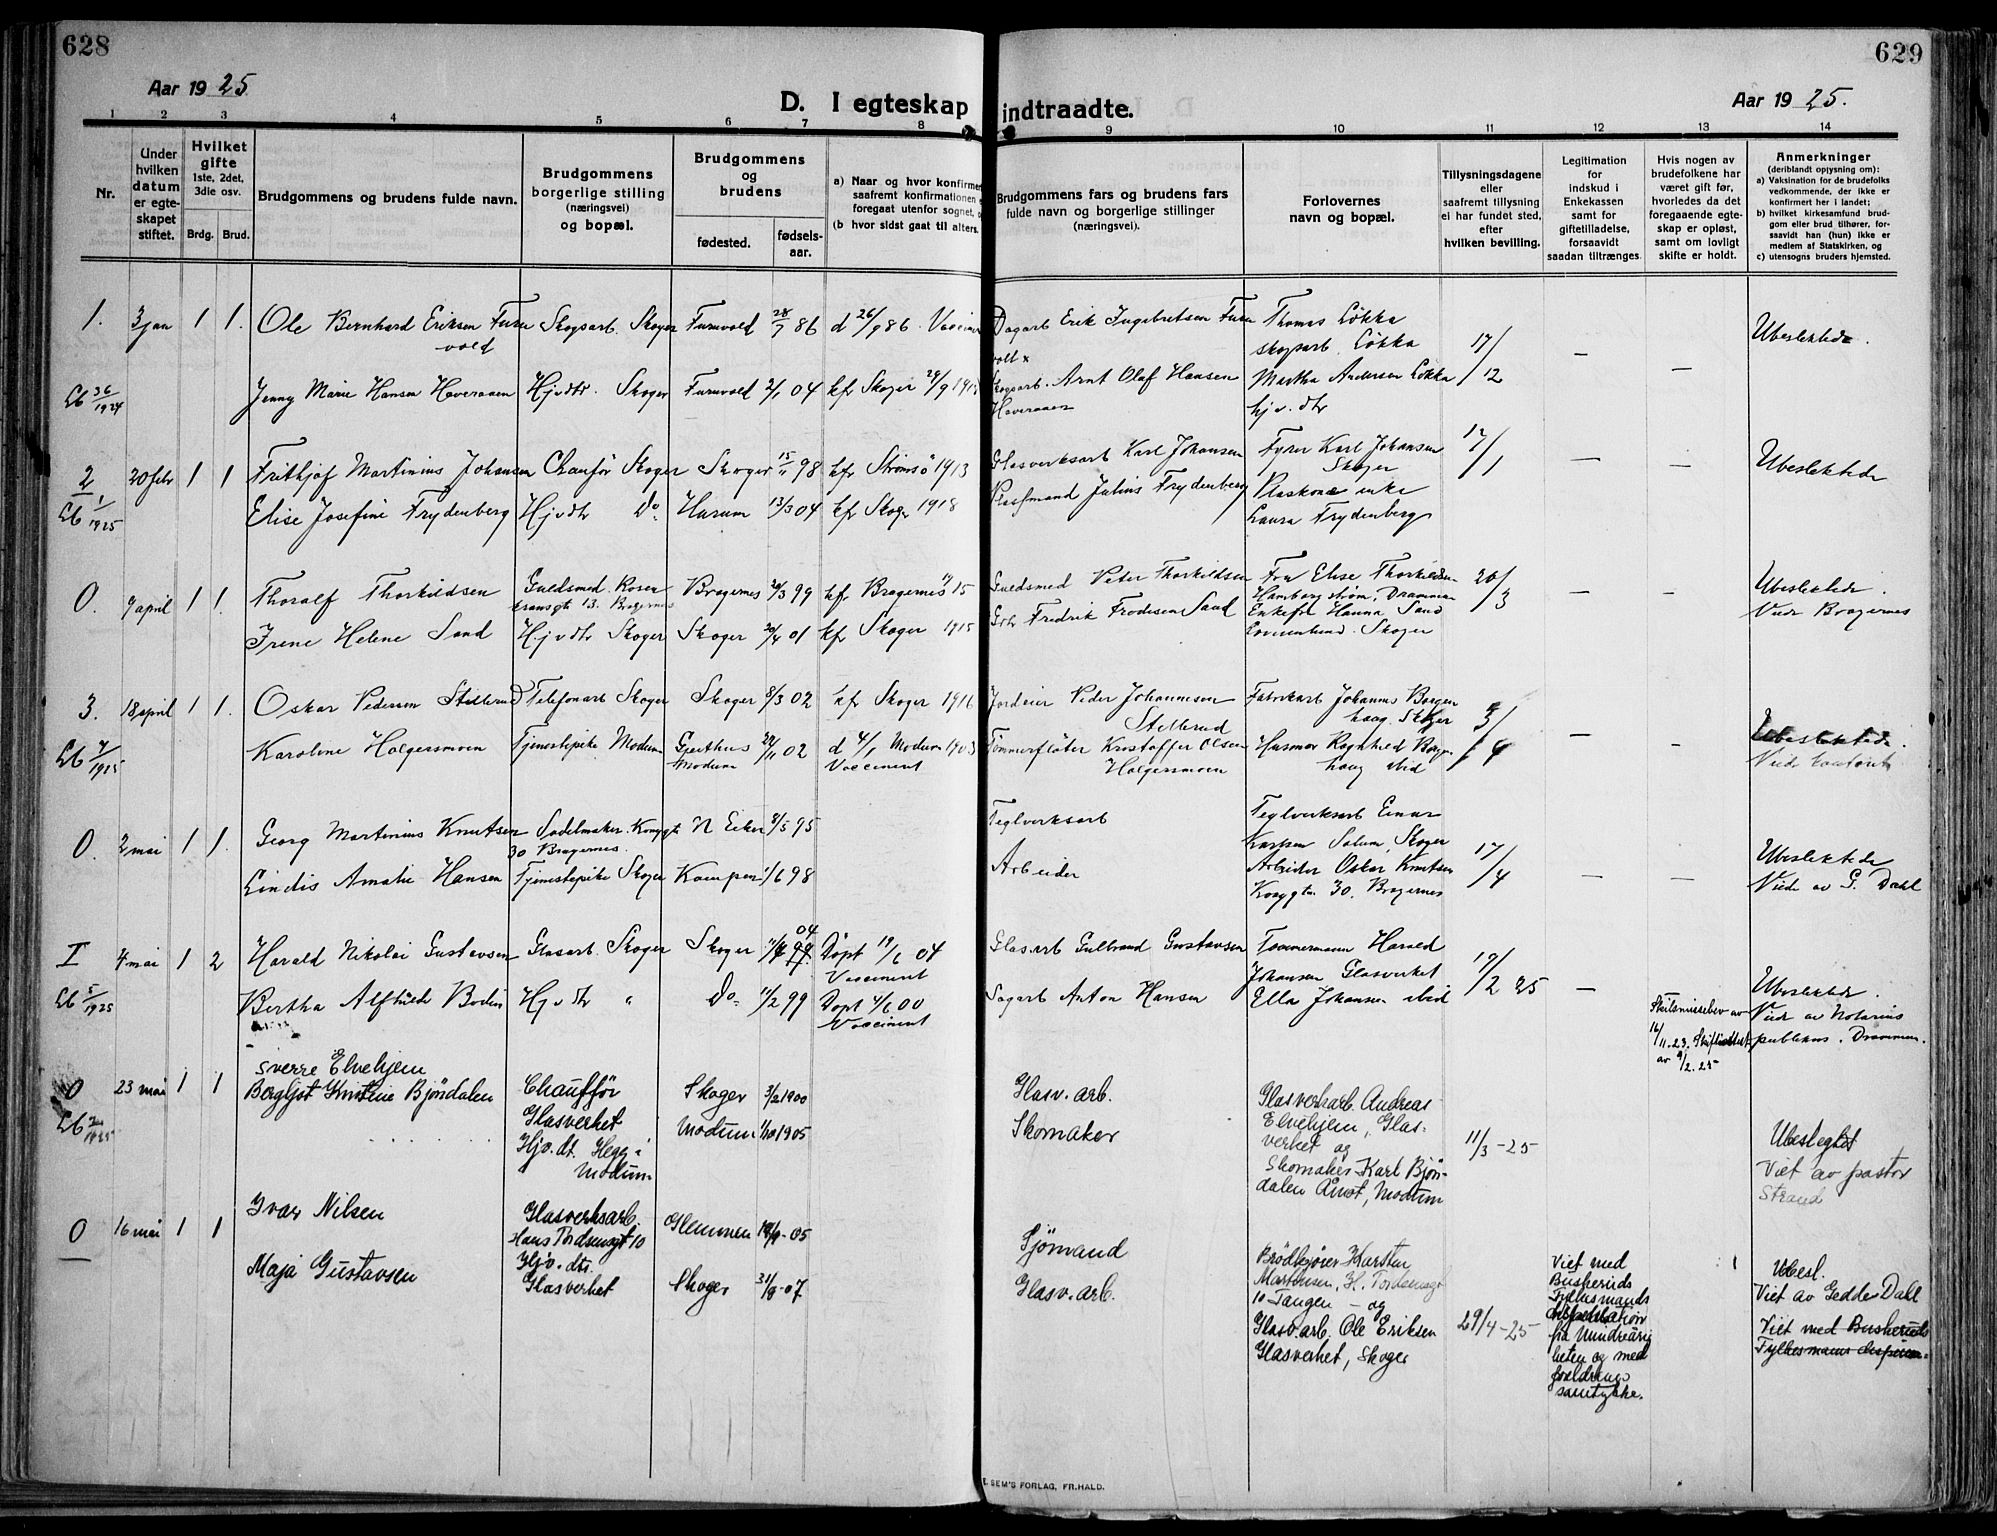 628
629
Aar 1925
D. I egteskap indtraadte.
Aar 1925.
1 2 3 4 5 6 7 8 9 10 11 12 13 14
Nr.
Under hvilken datum er egteskapet stiftet.
Hvilket gifte
1ste, 2det, 3die osv.
Brdg. Brud.
Brudgommens og brudens fulde navn.
Brudgommens borgerlige stilling (næringsvei) og bopæl.
Brudgommens og brudens
fødested. fødsels-aar.
a) Naar og hvor konfirmer
saafremt konfirmationen
foregaat utenfor sognet,
(b hvor sidst gaat til alters.
Brudgommens fars og brudens fars
fulde navn og borgerlige stillinger
(næringsvei).
Forlovernes
navn og bopæl.
Tillysningsdagene
eller
saafremt tillysning
ei har fundet sted,
efter
hvilken bevilling.
Legitimation
for
indskud i
Enkekassen
samt for
giftetilladelse,
forsaavidt
saadan tiltrænges.
Hvis nogen av
brudefolkene har
været gift før,
hvorledes da det
foregaaende egte-
skap er opløst,
samt om lovligt
skifte er holdt.
Anmerkninger
(deriblandt opjysning om):
a) Vaksination for de brudefolks
vedkommende, der ikke er
konfirmert her i landet;
b) hvilket kirkesamfund brud-
gom eller brud tilhører, for-
saavidt han (hun) ikke er
medlem af Statskirken, og
c) utensogns bruders hjemsted.
1. 3 jan 1 1. Ole Bernhard Eriksen Furu Skogsarb. Skoger Furuvold 28/7 86 d 26/9 86. Vaccinert Dagarb Erik Ingebretsen Furu Thomas Løkka
vold volt skogsarb. Løkka 17/12 — — Ubeslektede.
Lb 36/1924 Jenny Marie Hansen Haveraaen Hjvdtr. Skoger Furuvold 2/1 04 kf Skoger 28/9 191 Skogsarb. Arnt Olaf Hansen Martha Andersen Løkka
Haveraaen hj v. dtr
2 20 febr 1 1 Frithjof Martinius Johansen Chauför Skoger Skoger 15/11 98 kf Strømsö 1913 Glasverksarb Karl Johansen Fyrer Karl Johansen
Skoger 17/1 — — Ubeslektede
Lb 1/1925 Elise Josefine Frydenberg Hjvdtr Do Hurum 13/3 04 kf Skoger 1918 Julius Frydenberg enke
Laura Frydenberg
0. 7 april 1 1. Thoralf Thorkildsen Guldsmed Rosen Bragernes 20/3 99 kf Bragernes 15 Guldsmed Peter Thorkildsen Fru Elise Thorkildsen 20/3 — — Ubeslektede.
kransgt 13. Bragernes Hamborgstrøm, Drammen Viede Bragernes
Irene Helene Sand Hjvdtr Skoger Skoger 20/4 01 kf Skoger 1915 Fredrik Frodesen Sand Enkefru Hanna Sand
Skoger
3. 18 april 1 1. Oskar Pedersen Stillerud Telefonarb Skoger Skoger 8/3 02 kf Skoger 1916 Jordeier Peder Johannesen Fabrikarb Johannes Borgen
Stillerud haug Skoger — — Ubeslektede.
Lb 7/1925 Karoline Holgersmoen Tjenestepike Modum Geithus 29/11 02 d 4/1 Modum 1903 Tømmerfløter Kristoffer Olsen Husmor Ragnhild Borgen
Modum Vaccinert Holgersmoen haug ibid
0. 2 mai 1 1. Georg Martinius Knutsen Sadelmaker. Kongsgt N Eiker 8/5 95 Teglverksarb Teglverksarb Einar
30 Bragernes. Karlsen Solum, Skoger 17/4 — — Ubeslektede
Lindis Amalie Hansen Tjenestepike Skoger Kampen 1/6 98 Arbeider Arbeider Oskar Knutsen
Kongsgtn 30. Bragernes Viede av G. Dahl
I 4 mai 1 2 Harald Nikolai Gustavsen Glasarb. Skoger Skoger 04 Døpt 19/6 04 Glasarb Gulbrand Gustavsen Tømmermann Harald
Vaccinert Johansen Glasverket 19/2 25 — Ubeslektede.
Lb 5/1925 Bertha Alfhilde Bodin Hjvdtr " Do 11/2 99 Døpt 4/6 00 Sagarb Anton Hansen Ella Johansen ibid
Vaccinert Skilsmissebev av 16/11.23. Skifteattest av 9/2.25 Viede av Notarius publicus. Drammen.
0 23 mai 1 1 Sverre Elvehjem
Lb 1925 Bergljot Kristine Bjøndalen Chauffør
Glasverket Skoger 3/2 1900 Glasv. arb. Glasverkarb. Andreas
Elvehjem, Glas-
verket og 11/3-25 Ubeslegtet
Hjv. dt. Hegg i
Modum Modum 1/10 1905 Skomaker Skomaker Karl Bjøn-
dalen Åmot, Modum Viet av pastor
Strand
0 16 mai 1 1 Ivar Nilsen Glasverksarb.
Hans Tordsensgt 10 Glemmen 05 Sjømand Brødkjører Karsten
Martinsen, H. Tordsensgt
10 Tangen – og
Maja Gustavsen Hjv. dtr.
Glasverket Skoger 31/8-07 Glasv. arb. Glasv. arb. Ole Eriksen
Glasverket, Skoger 29/4-25
Viet med
Buskeruds
Fylkesmands
dispensation
fra mindreårig
heten og med
foreldrenes
samtykke.
Ubesl.
Viet av Gedde Dahl
Viet med Buskeruds
Fylkesmans dispens.
E. SEM'S FORLAG, FR.HALD.